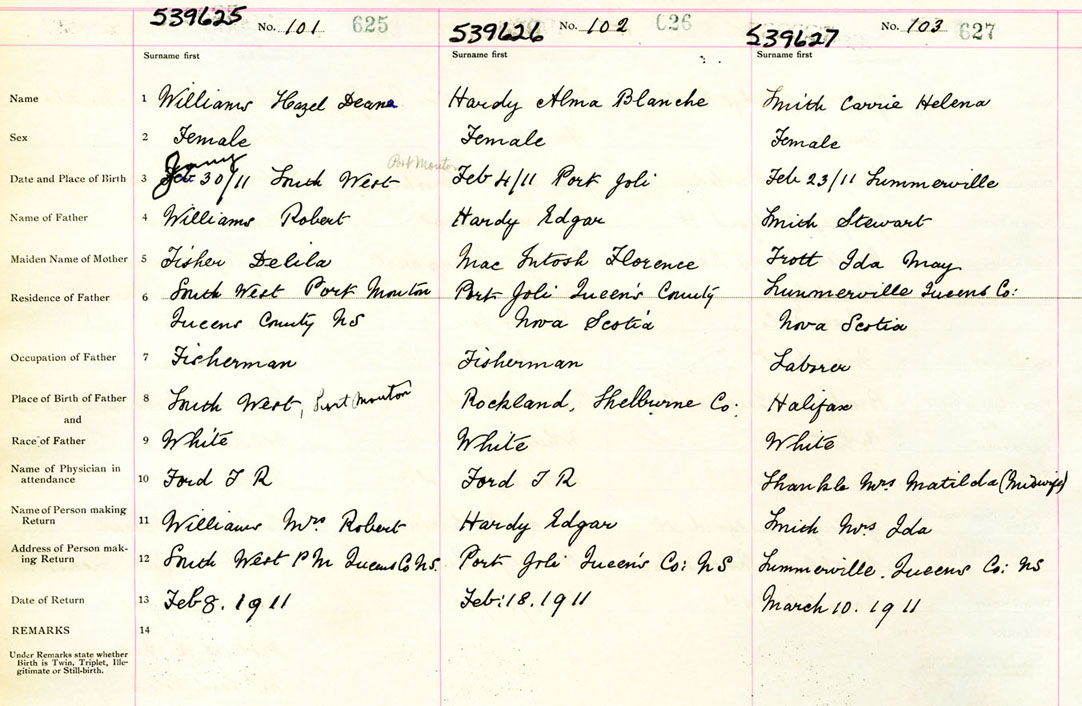 539625 No. 101 625 539626 No. 102 626 539627 No. 103 627
Surname first Surname first Surname first
Name 1 Williams Hazel Deane Hardy Alma Blanche Smith Carrie Helena
Sex 2 Female Female Female
Jany Port Mouton
Date and Place of Birth 3 Feb 30/11 South West Feb 4/11 Port Joli Feb 23/11 Summerville
Name of Father 4 Williams Robert Hardy Edgar Smith Stewart
Maiden Name of Mother 5 Fisher Delila Mac Intosh Florence Trott Ida May
Residence of Father 6 South West Port Mouton Port Joli Queen's County Summerville Queens Co:
Queens County NS Nova Scotia Nova Scotia
Occupation of Father 7 Fisherman Fisherman Laborer
Place of Birth of Father 8 South West, Port Mouton Rockland, Shelburne Co: Halifax
and
Race of Father 9 White White White
Name of Physician in
attendance 10 Ford T R Ford T R Shankle Mrs Matilda (Midwife)
Name of Person making
Return 11 Williams Mrs Robert Hardy Edgar Smith Mrs Ida
Address of Person mak-
ing Return 12 South West P M Queens Co NS. Port Joli Queen's Co: NS Summerville. Queens Co: NS
Date of Return 13 Feb 8. 1911 Feb: 18. 1911 March 10. 1911
REMARKS 14
Under Remarks state whether
Birth is Twin, Triplet, Ille-
gitimate or Still-birth.